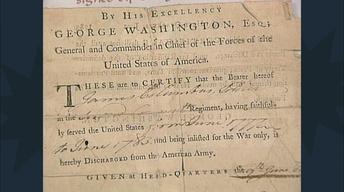 By His Excellency
GEORGE WASHINGTON, Esq;
General and Commander in Chief of the Forces of the
United States of America.
THESE are to CERTIFY that the Bearer hereof
James
in the Regiment, having faithful-
ly served the United States from June
to June and being inlisted for the War only, is
hereby DISCHARGED from the American Army.
GIVEN at HEAD-QUARTERS the